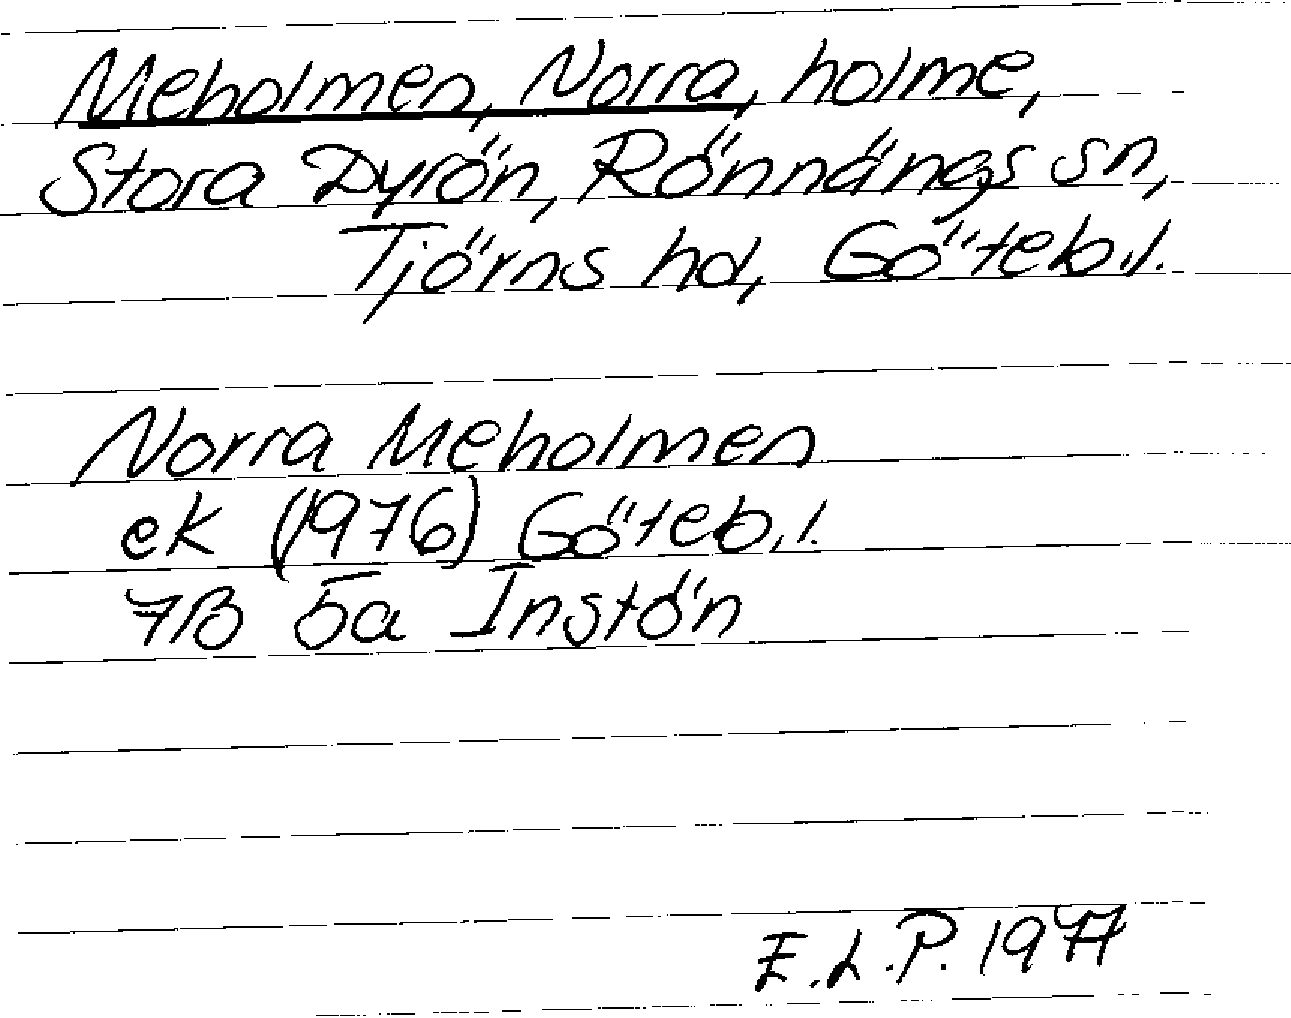 Meholmen, Norra, holme,
Stora Dyrön, Rönnängs sn,
Tjörns hd, Göteb.l.
Norra Meholmen
ek (1976) Göteb.l.
7B 5a Instön
E.L.P. 1977